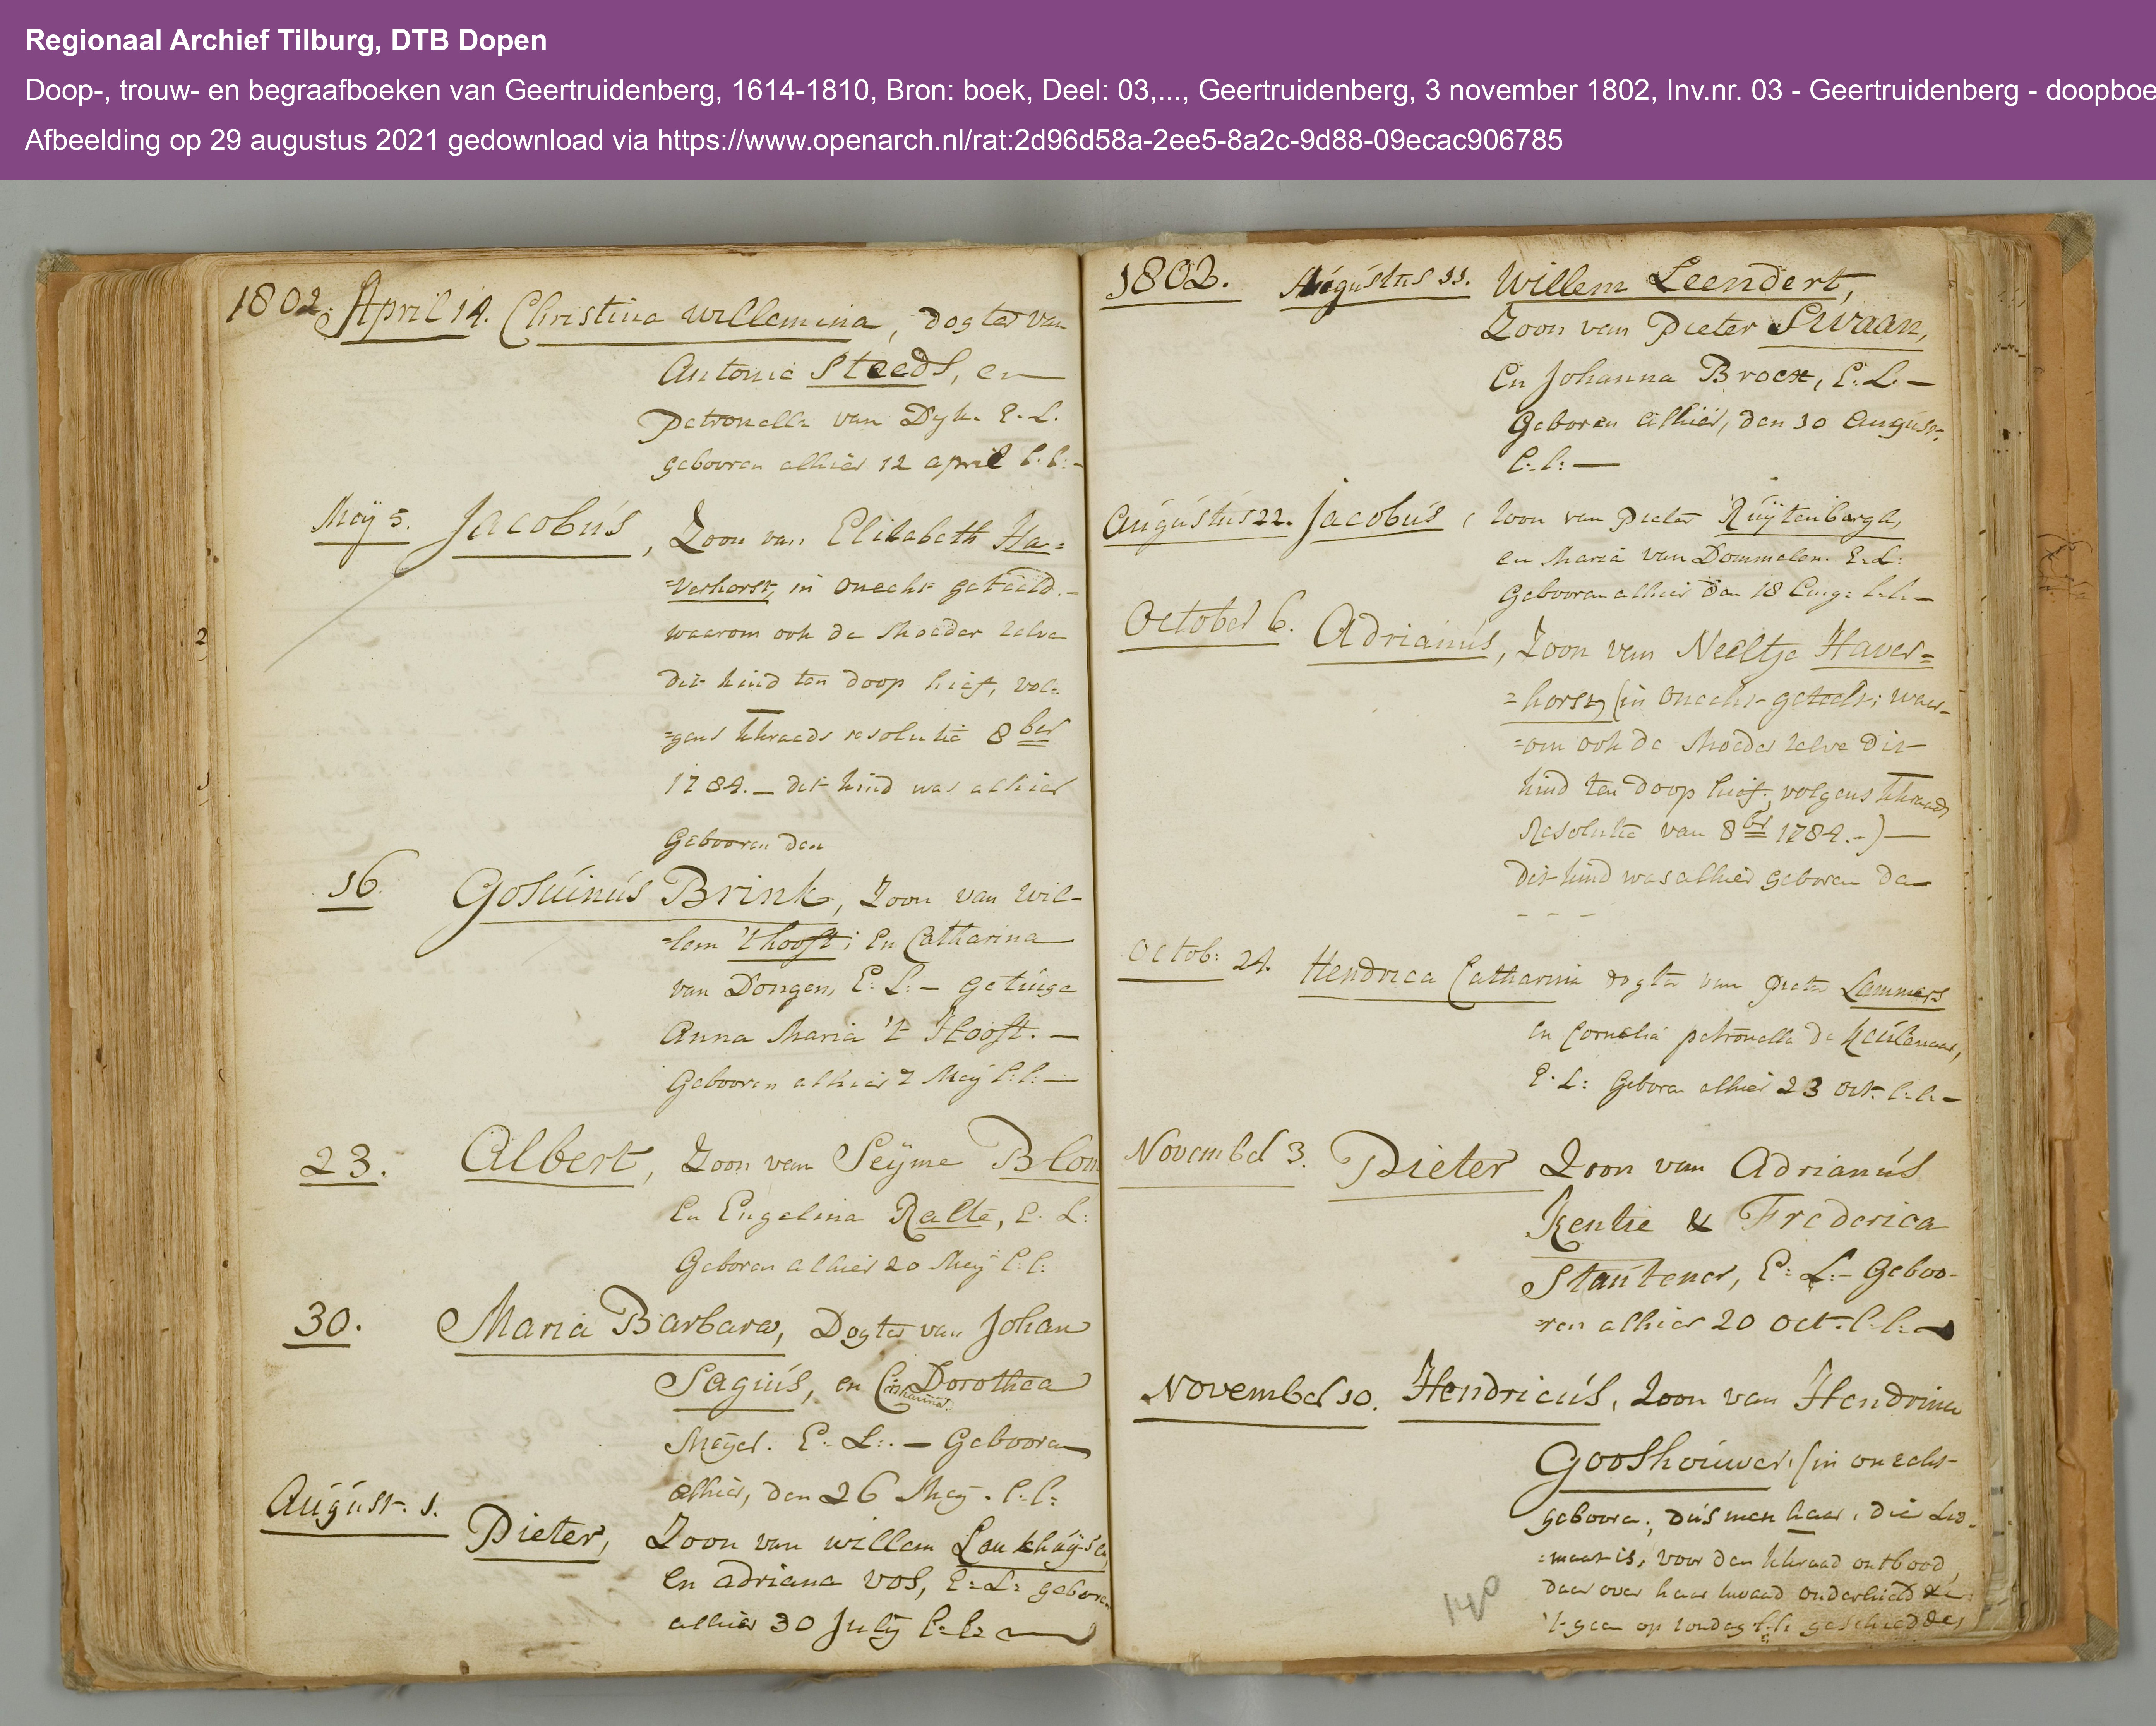 Regionaal Archief Tilburg, DTB Dopen
Doop-, trouw- en begraafboeken van Geertruidenberg, 1614-1810, Bron: boek, Deel: 03,..., Geertruidenberg, 3 november 1802, Inv.nr. 03 - Geertruidenberg - doopboe
Afbeelding op 29 augustus 2021 gedownload via https://www.openarch.nl/rat:2d96d58a-2ee5-8a2c-9d88-09ecac906785
1802. April 14. Christina Willemina, dogter van
Antonie Steeds, en
Petronella van Dyk. E. L.
gebooren alhier 12 april l.l:-
Meÿ 5. Jacobús, Zoon van Elizabeth Ha=
=verhorst, in onecht geteeld.-
waarom ook de Moeder zelve
dit kind ten doop hief, vol=
=gens kkraads resolutie 8ber
1784.- dit kind was alhier
Gebooren den
16. Gosúinús Brink, Zoon van Wil-
=lem 't hooft; en Catharina
van Dongen, E: L:- getúige
Anna Maria 't Hooft.-
Gebooren alhier 7 Meÿ l:l:-
23. Albert, Zoon van Seÿme Blom
En Engelina Ralte, E. L:
Geboren alhier 20 Meÿ l:l:
30. Maria Barbara, Dogter van Johan
Sagiús, en Dorothea
Catharina
Meÿer. E. L:.- Gebooren
alhier, den 26 Meÿ. l.l:
Augúst. 1. Pieter, Zoon van willem
en adriana vos, E:L: geboren
alhier 30 Julÿ l:l:
1802. Augústus 11. Willem Leendert,
Zoon van Pieter Swaan,
En Johanna Broex, E:L.-
Geboren alhier, den 10 Augúst.
l:l:-
Augústus 22. Jacobús, Zoon van Pieter Rúÿtenbergh,
en Maria van Dommelen. E.L:
Gebooren alhier den 18 Aug: l.l:-
October 6. Adrianús, Zoon van Neeltje Haver=
=horst, (in onecht geteelt; waar-
=om ook de Moeder zelve dit
kind ten doop hief, volgens kkraads
Resolutie van 8br 1784.-)-
Dit kind was alhier geboren den
- - -
Octob: 24. Hendrica Catharina dogter van Pieter Lammers
en Cornelia petronella de Keúlenaar,
E.L: Geboren alhier 23 Oct. l.l:-
November 3. Pieter Zoon van Adrianús
Kentie & Frederica
Staútener, E:L:- Geboo-
=ren alhier 20 Oct. l.l:-
November 10. Hendricús, Zoon van Hendrina
Gooshoúwer, (in onecht
gebooren; dús men haar, die Led-
=maat is, voor den kkraad ontbood,
daar over haar kwaad onderhield
't geen op zondag l:l: geschied
140